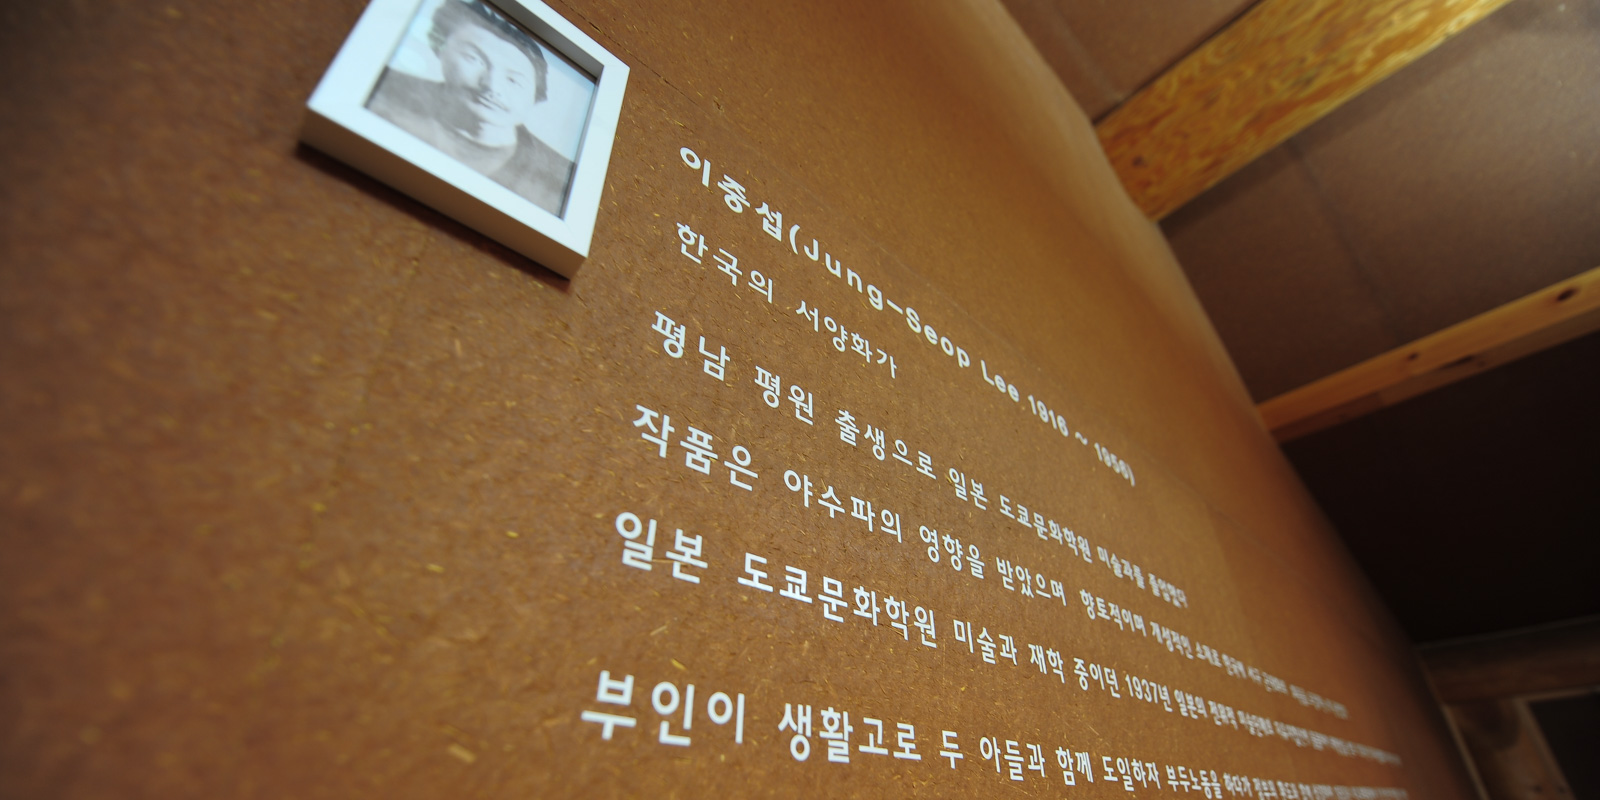 이중섭(Jung-Seop Lee 1916 ~ 1956)
한국의 서양화가
평남 평원 출생으로 일본 도쿄문화학원 미술과를 졸업했다
작품은 야수파의 영향을 받았으며 향토적이며 개성적인 소재로
일본 도쿄문화학원 미술과 재학 중이던 1937년 일본의 전위적 미술단체
부인이 생활고로 두 아들과 함께 도일하자 부두노동을 하다가